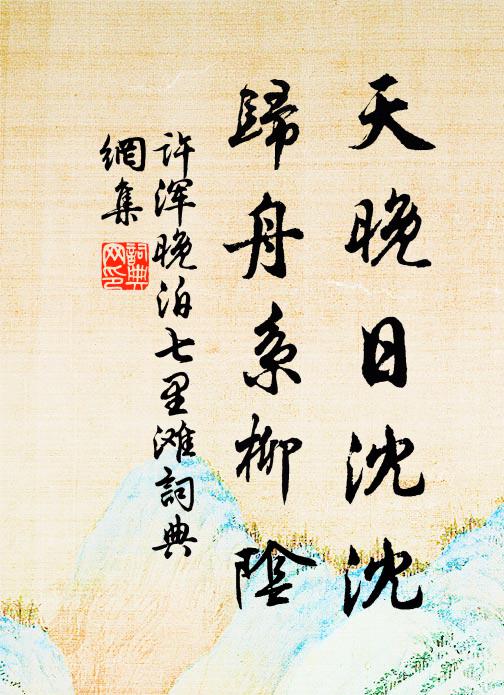 天晚日沈沈
歸舟系柳陰
许浑晚泊七里滩詞典
網集
詞典
网印